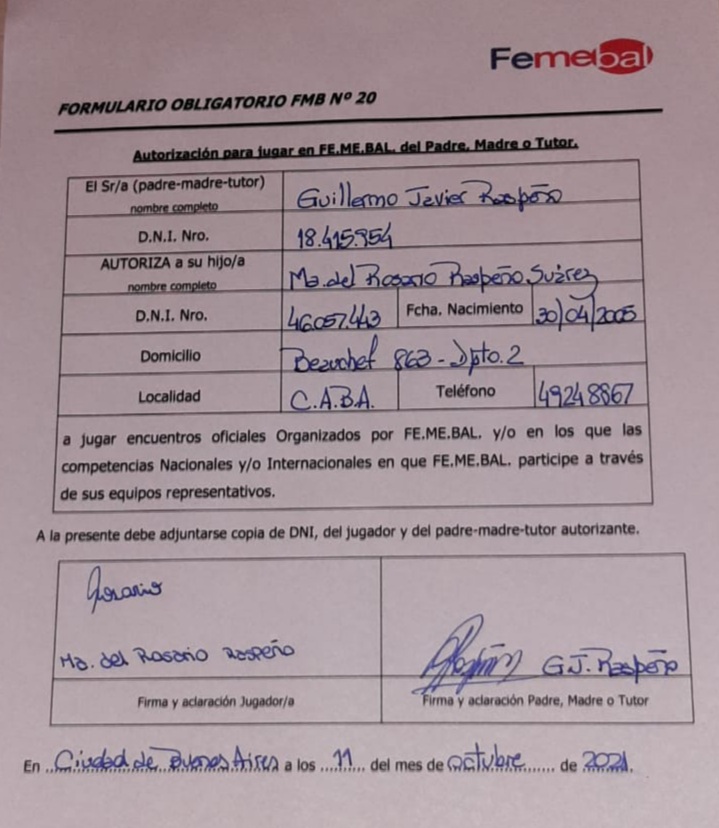 Femebal
FORMULARIO OBLIGATORIO FMB Nº 20
Autorización para jugar en FE.ME.BAL. del Padre, Madre o Tutor.
El Sr/a (padre-madre-tutor) nombre completo Guillermo Javier Raspeño
D.N.I. Nro. 18.415.954
AUTORIZA a su hijo/a nombre completo Ma. del Rosario Raspeño Suárez
D.N.I. Nro. 46057.443 Fcha. Nacimiento 30/04/2005
Domicilio Beauchef 863 - Dpto. 2
Localidad C.A.B.A. Teléfono 49248867
a jugar encuentros oficiales Organizados por FE.ME.BAL. y/o en los que las
competencias Nacionales y/o Internacionales en que FE.ME.BAL. participe a través
de sus equipos representativos.
A la presente debe adjuntarse copia de DNI, del jugador y del padre-madre-tutor autorizante.
Rosario
Ma. del Rosario Raspeño G.J. Raspeño
Firma y aclaración Jugador/a Firma y aclaración Padre, Madre o Tutor
En Ciudad de Buenos Aires a los 11 del mes de octubre de 2021.